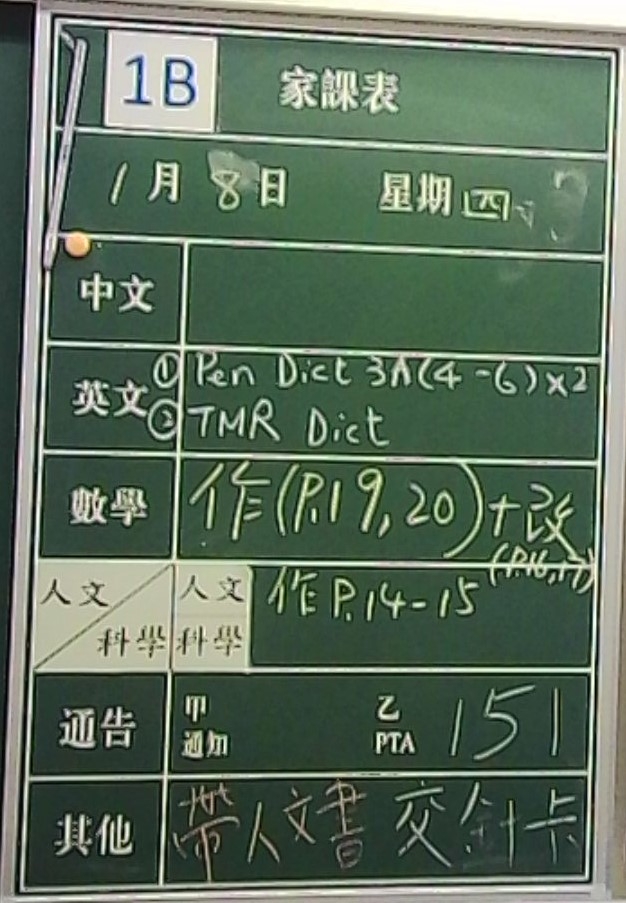 1B 家課表
1月8日 星期四
中文
英文 ① Pen Dict 3A(4-6)×2
② TMR Dict
數學 作(P.19,20)+改
(P.16,17)
人文 人文 作 P.14-15
科學 科學
通告 甲 乙 151
通知 PTA
其他 帶人文書 交針卡